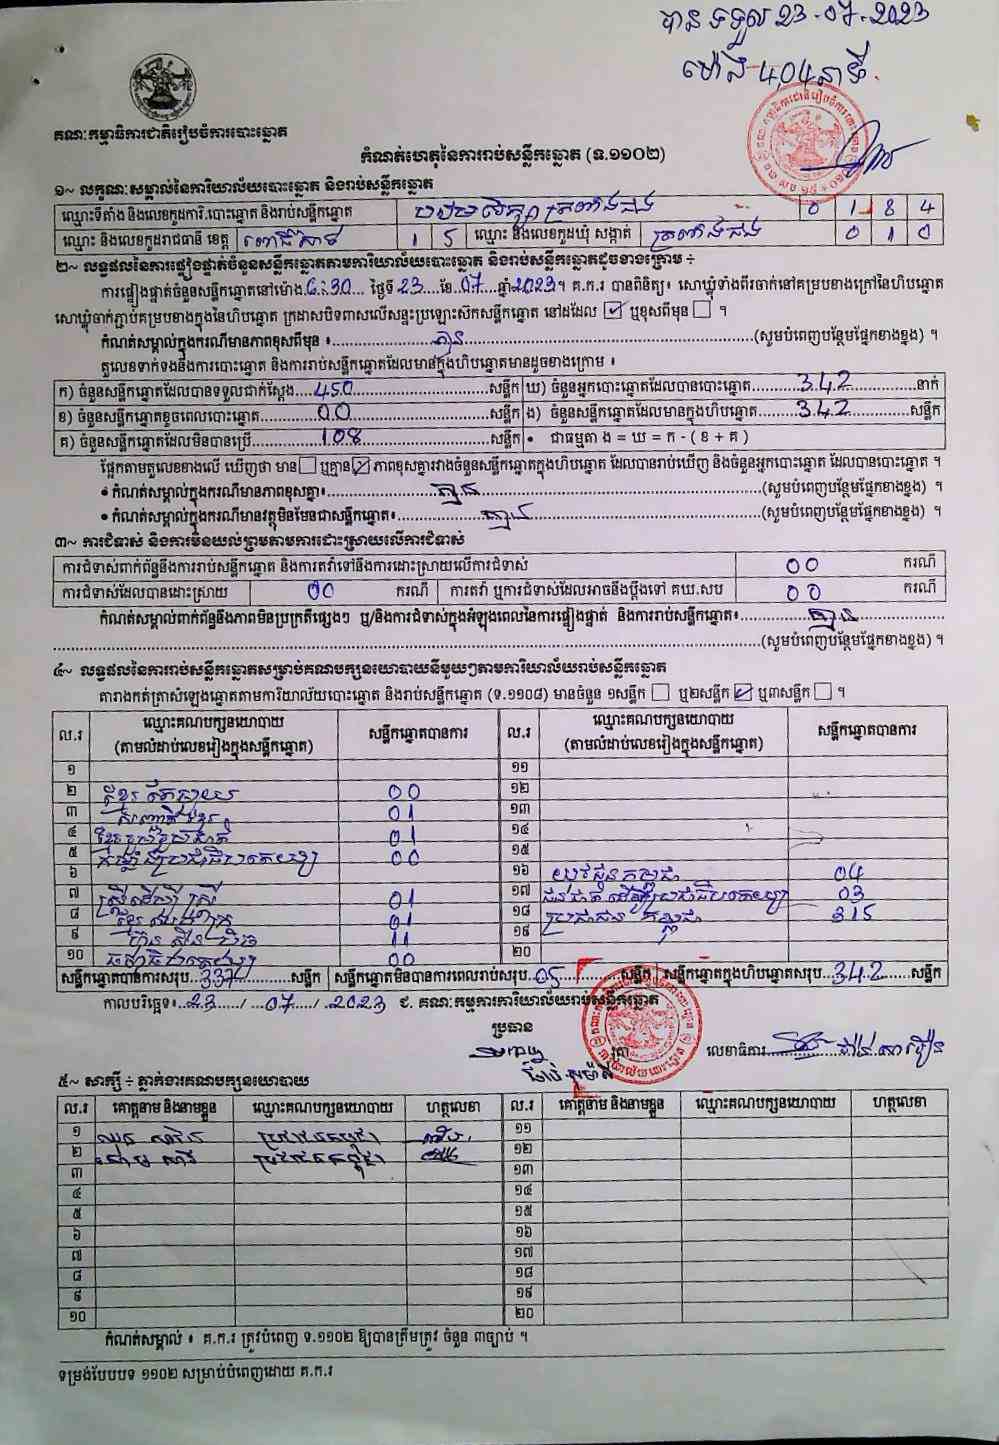 បានទទួល 23-07-2023
ម៉ោង 4,04 នាទី
គណៈកម្មាធិការជាតិរៀបចំការបោះឆ្នោត
កំណត់ហេតុនៃការរាប់សន្លឹកឆ្នោត (ទ.១១០២)
១~ លក្ខណៈសម្គាល់នៃការិយាល័យបោះឆ្នោត និងរាប់សន្លឹកឆ្នោត
ឈ្មោះទីតាំង និងលេខកូដការិ.បោះឆ្នោត និងរាប់សន្លឹកឆ្នោត 0 1 8 4
ឈ្មោះ និងលេខកូដរាជធានី ខេត្ត ពោធិ៍សាត់ 1 5 ឈ្មោះ និងលេខកូដឃុំ សង្កាត់ ត្រពាំងជង 0 1 0
២~ លទ្ធផលនៃការផ្ទៀងផ្ទាត់ចំនួនសន្លឹកឆ្នោតតាមការិយាល័យបោះឆ្នោត និងរាប់សន្លឹកឆ្នោតដូចខាងក្រោម ÷
ការផ្ទៀងផ្ទាត់ចំនួនសន្លឹកឆ្នោតនៅម៉ោង 6:30 ថ្ងៃទី 23 ខែ 07 ឆ្នាំ 2023 ។ គ.ក.រ បានពិនិត្យ៖ សោឃ្លុំទាំងពីរចាក់នៅគម្របខាងក្រៅនៃហិបឆ្នោត
សោឃ្លុំចាក់ភ្ជាប់គម្របខាងក្នុងនៃហិបឆ្នោត ក្រដាសបិទពាសលើសន្ទះប្រឡោះស៊កសន្លឹកឆ្នោត នៅដដែល ☑ ឬខុសពីមុន ☐ ។
កំណត់សម្គាល់ក្នុងករណីមានភាពខុសពីមុន ៖ គ្មាន (សូមបំពេញបន្ថែមផ្នែកខាងខ្នង) ។
តួលេខទាក់ទងនឹងការបោះឆ្នោត និងការរាប់សន្លឹកឆ្នោតដែលមានក្នុងហិបឆ្នោតមានដូចខាងក្រោម ៖
ក) ចំនួនសន្លឹកឆ្នោតដែលបានទទួលជាក់ស្តែង 450 សន្លឹក ឃ) ចំនួនអ្នកបោះឆ្នោតដែលបានបោះឆ្នោត 342 នាក់
ខ) ចំនួនសន្លឹកឆ្នោតខូចពេលបោះឆ្នោត 00 សន្លឹក ង) ចំនួនសន្លឹកឆ្នោតដែលមានក្នុងហិបឆ្នោត 342 សន្លឹក
គ) ចំនួនសន្លឹកឆ្នោតដែលមិនបានប្រើ 108 សន្លឹក • ជាធម្មតា ង = ឃ = ក - ( ខ + គ )
ផ្អែកតាមតួលេខខាងលើ ឃើញថា មាន ☐ ឬគ្មាន ☑ ភាពខុសគ្នារវាងចំនួនសន្លឹកឆ្នោតក្នុងហិបឆ្នោត ដែលបានរាប់ឃើញ និងចំនួនអ្នកបោះឆ្នោត ដែលបានបោះឆ្នោត ។
• កំណត់សម្គាល់ក្នុងករណីមានភាពខុសគ្នា៖ គ្មាន (សូមបំពេញបន្ថែមផ្នែកខាងខ្នង) ។
• កំណត់សម្គាល់ក្នុងករណីមានវត្ថុមិនមែនជាសន្លឹកឆ្នោត៖ គ្មាន (សូមបំពេញបន្ថែមផ្នែកខាងខ្នង) ។
៣~ ការជំទាស់ និងការមិនយល់ព្រមតាមការដោះស្រាយលើការជំទាស់
ការជំទាស់ពាក់ព័ន្ធនឹងការរាប់សន្លឹកឆ្នោត និងការតវ៉ាទៅនឹងការដោះស្រាយលើការជំទាស់ 00 ករណី
ការជំទាស់ដែលបានដោះស្រាយ 00 ករណី ការតវ៉ា ឬការជំទាស់ដែលអាចនឹងប្តឹងទៅ គឃ.សប 00 ករណី
កំណត់សម្គាល់ពាក់ព័ន្ធនឹងភាពមិនប្រក្រតីផ្សេងៗ ឬ/និងការជំទាស់ក្នុងអំឡុងពេលនៃការផ្ទៀងផ្ទាត់ និងការរាប់សន្លឹកឆ្នោត៖ គ្មាន
(សូមបំពេញបន្ថែមផ្នែកខាងខ្នង) ។
៤~ លទ្ធផលនៃការរាប់សន្លឹកឆ្នោតសម្រាប់គណបក្សនយោបាយនីមួយៗតាមការិយាល័យរាប់សន្លឹកឆ្នោត
តារាងកត់ត្រាសំឡេងឆ្នោតតាមការិយាល័យបោះឆ្នោត និងរាប់សន្លឹកឆ្នោត (ទ.១១០៨) មានចំនួន ១សន្លឹក ☐ ឬ២សន្លឹក ☑ ឬ៣សន្លឹក ☐ ។
ល.រ ឈ្មោះគណបក្សនយោបាយ (តាមលំដាប់លេខរៀងក្នុងសន្លឹកឆ្នោត) សន្លឹកឆ្នោតបានការ ល.រ ឈ្មោះគណបក្សនយោបាយ (តាមលំដាប់លេខរៀងក្នុងសន្លឹកឆ្នោត) សន្លឹកឆ្នោតបានការ
១ ១១
២ 00 ១២
៣ 01 ១៣
៤ 01 ១៤
៥ 00 ១៥
៦ ១៦ 04
៧ ស្រ្តីដើម្បីស្រ្តី 01 ១៧ 03
៨ 01 ១៨ ប្រជាជនកម្ពុជា 315
៩ 11 ១៩
១០ 00 ២០
សន្លឹកឆ្នោតបានការសរុប 337 សន្លឹក សន្លឹកឆ្នោតមិនបានការពេលរាប់សរុប 05 សន្លឹក សន្លឹកឆ្នោតក្នុងហិបឆ្នោតសរុប 342 សន្លឹក
កាលបរិច្ឆេទ៖ 23 / 07 / 2023 ជ. គណៈកម្មការការិយាល័យរាប់សន្លឹកឆ្នោត
ប្រធាន
ត្រា លេខាធិការ
៥~ សាក្សី ÷ ភ្នាក់ងារគណបក្សនយោបាយ
ល.រ គោត្តនាម និងនាមខ្លួន ឈ្មោះគណបក្សនយោបាយ ហត្ថលេខា ល.រ គោត្តនាម និងនាមខ្លួន ឈ្មោះគណបក្សនយោបាយ ហត្ថលេខា
១ ប្រជាជនកម្ពុជា ១១
២ ប្រជាជនកម្ពុជា ១២
៣ ១៣
៤ ១៤
៥ ១៥
៦ ១៦
៧ ១៧
៨ ១៨
៩ ១៩
១០ ២០
កំណត់សម្គាល់ ៖ គ.ក.រ ត្រូវបំពេញ ទ.១១០២ ឱ្យបានត្រឹមត្រូវ ចំនួន ៣ច្បាប់ ។
ទម្រង់បែបបទ ១១០២ សម្រាប់បំពេញដោយ គ.ក.រ